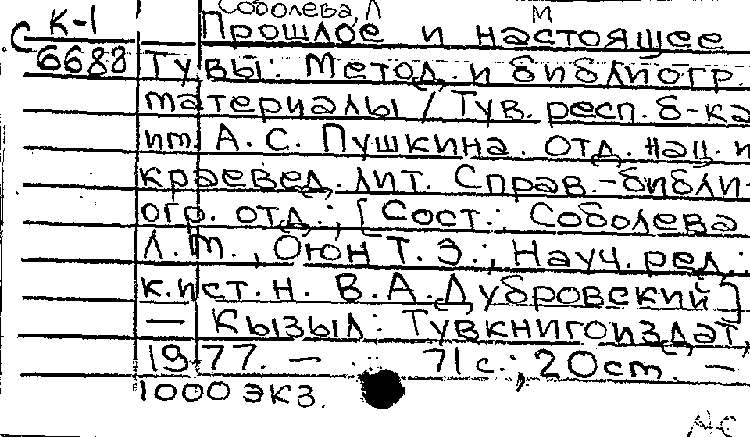 Соболева Л М
К-1 Прошлое и настоящее
С 6688 Тувы: Метод. и библиогр.
материалы / Тув. респ. б-ка
им. А. С. Пушкина. Отд. нац. и
краевед. лит. Справ.-библи-
огр. отд.; [Сост.: Соболева
Л. М., Оюн Т. Э.; Науч. ред.:
к. ист. н. В. А. Дубровский]
— Кызыл: Тувкнигоиздат,
1977. — 71 с.; 20 см. —
1000 экз.